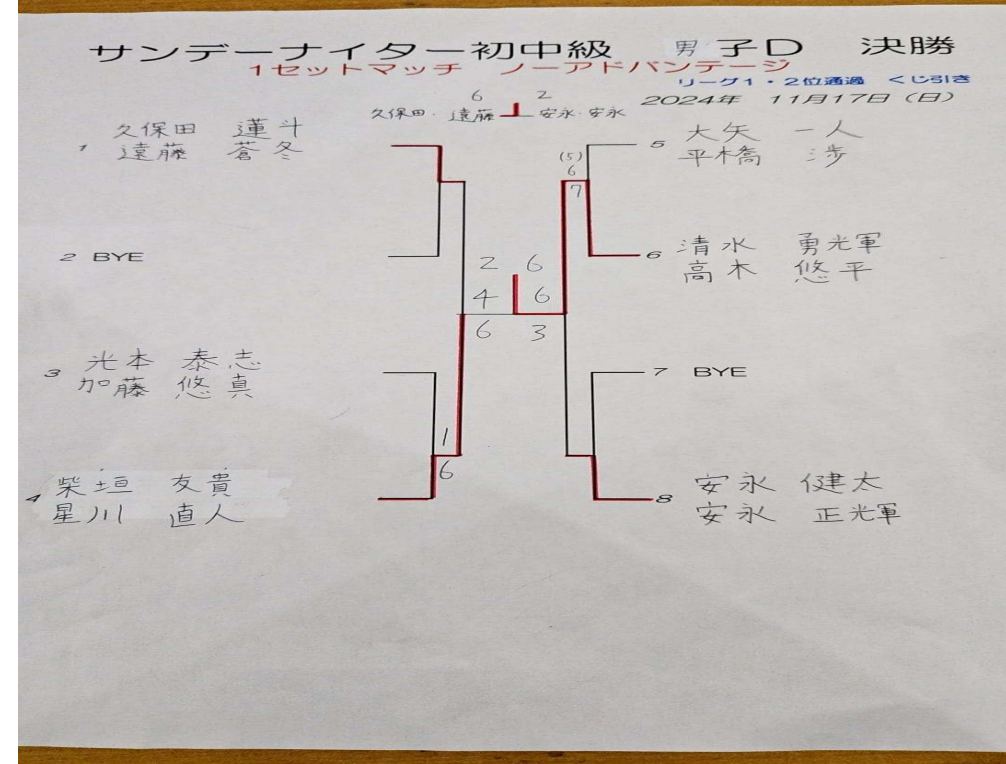 サンデーナイター初中級　男子D　決勝
1セットマッチ　ノーアドバンテージ
リーグ1・2位通過　くじ引き
2024年　11月17日（日）
6　2
久保田・遠藤　安永・安永
1　久保田　蓮斗
遠藤　蒼冬
2　BYE
3　光本　泰志
加藤　悠真
4　柴垣　友貴
星川　直人
1
6
2　6
4　6
6　3
(5)
6
7
5　大矢　一人
平橋　渉
6　清水　勇輝
高木　悠平
7　BYE
8　安永　健太
安永　正輝